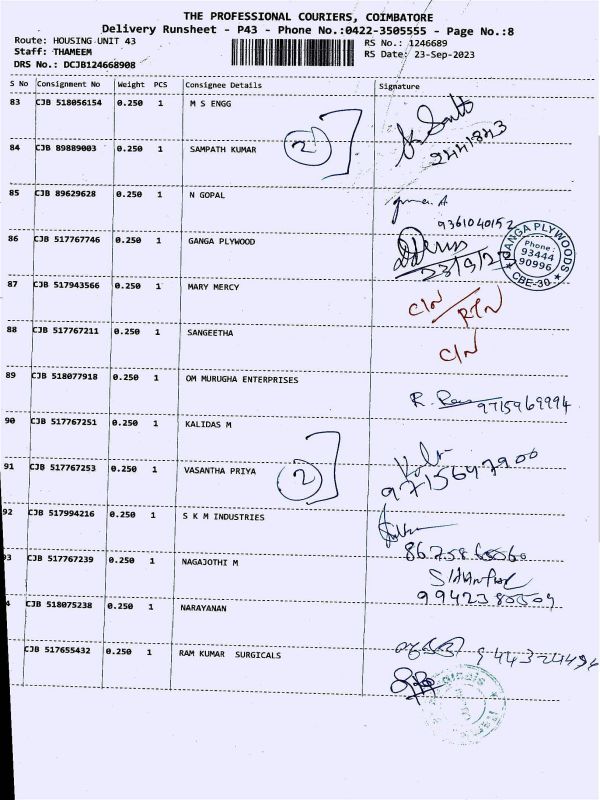 THE PROFESSIONAL COURIERS, COIMBATORE
Delivery Runsheet - P43 - Phone No.:0422-3505555 - Page No.:8
Route: HOUSING UNIT 43 RS No.: 1246689
Staff: THAMEEM RS Date: 23-Sep-2023
DRS No.: DCJB124668908
S No Consignment No Weight PCS Consignee Details Signature
83 CJB 518056154 0.250 1 M S ENGG
2441843
84 CJB 89889003 0.250 1 SAMPATH KUMAR
2
85 CJB 89629628 0.250 1 N GOPAL
9361040152
86 CJB 517767746 0.250 1 GANGA PLYWOOD
23/9/23
GANGA PLYWOODS
Phone:
93444
90996
CBE-30
87 CJB 517943566 0.250 1 MARY MERCY
C/N
RTN
88 CJB 517767211 0.250 1 SANGEETHA
C/N
89 CJB 518077918 0.250 1 OM MURUGHA ENTERPRISES
9715969994
90 CJB 517767251 0.250 1 KALIDAS M
91 CJB 517767253 0.250 1 VASANTHA PRIYA
2
9715647900
92 CJB 517994216 0.250 1 S K M INDUSTRIES
93 CJB 517767239 0.250 1 NAGAJOTHI M
4 CJB 518075238 0.250 1 NARAYANAN
CJB 517655432 0.250 1 RAM KUMAR SURGICALS